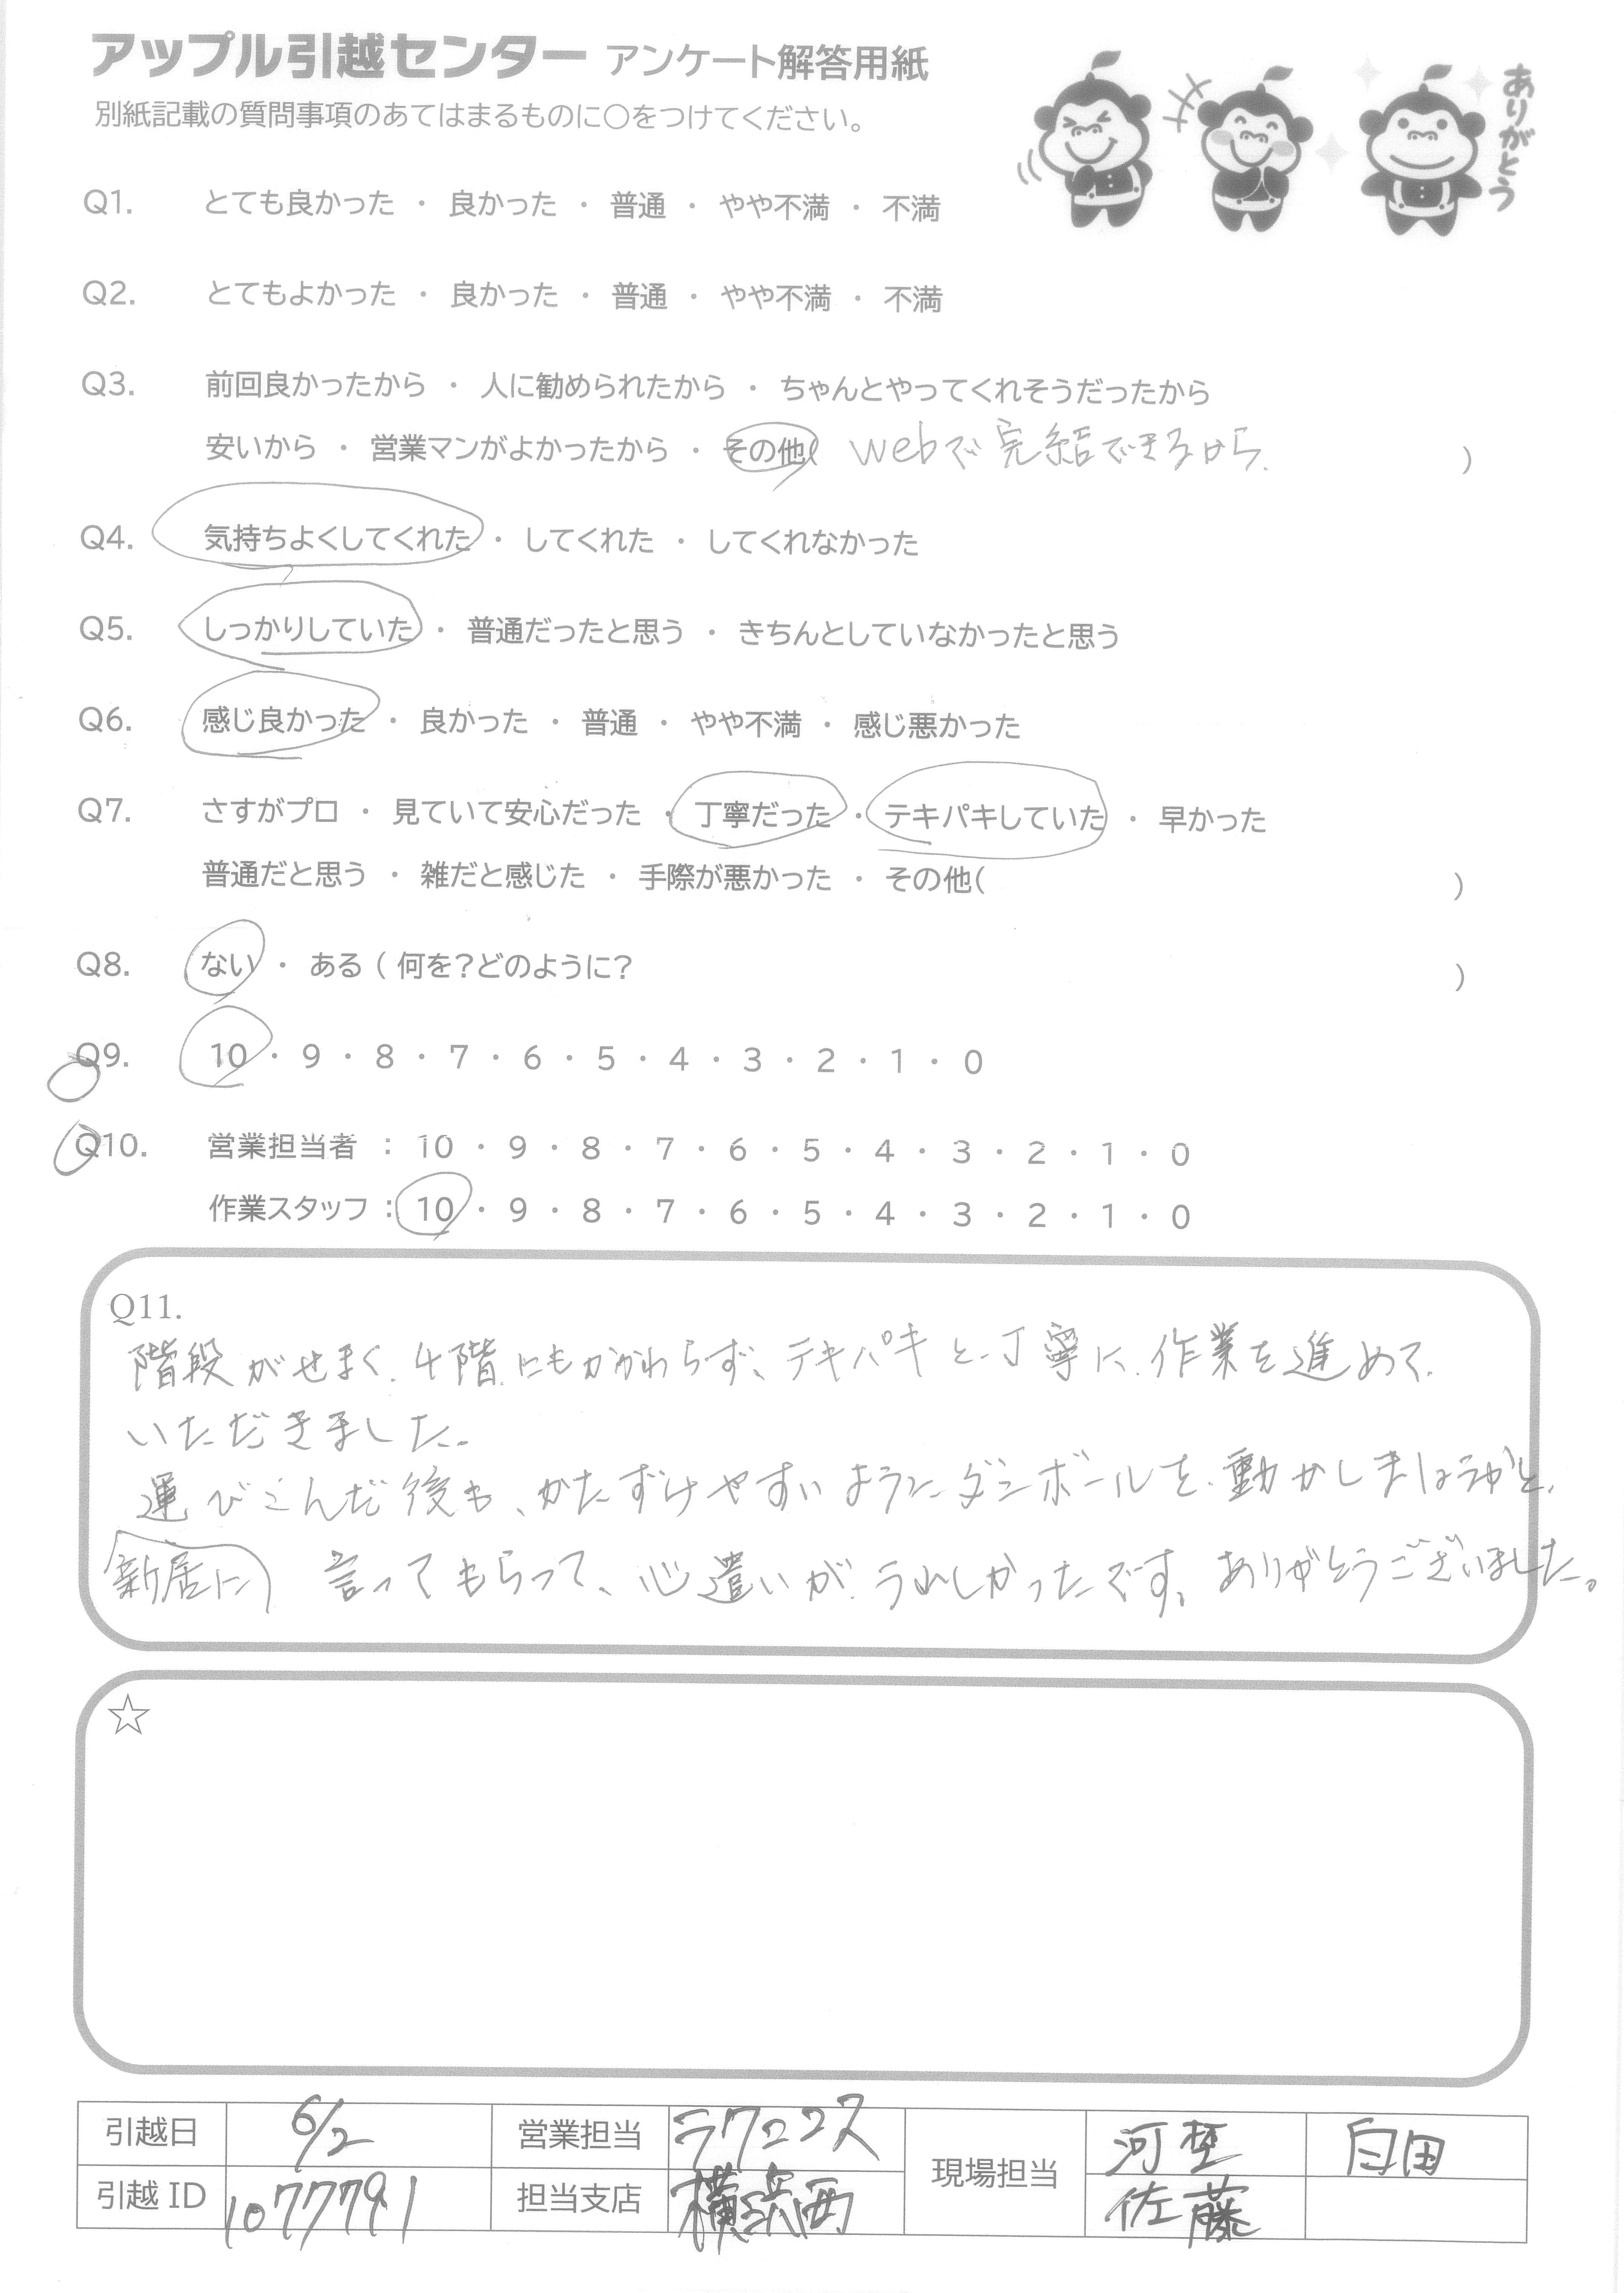 アップル引越センター アンケート解答用紙
別紙記載の質問事項のあてはまるものに○をつけてください。
ありがとう
Q1. とても良かった ・ 良かった ・ 普通 ・ やや不満 ・ 不満
Q2. とてもよかった ・ 良かった ・ 普通 ・ やや不満 ・ 不満
Q3. 前回良かったから ・ 人に勧められたから ・ ちゃんとやってくれそうだったから
安いから ・ 営業マンがよかったから ・ その他( webで完結できるから. )
Q4. 気持ちよくしてくれた ・ してくれた ・ してくれなかった
Q5. しっかりしていた ・ 普通だったと思う ・ きちんとしていなかったと思う
Q6. 感じ良かった ・ 良かった ・ 普通 ・ やや不満 ・ 感じ悪かった
Q7. さすがプロ ・ 見ていて安心だった ・ 丁寧だった ・ テキパキしていた ・ 早かった
普通だと思う ・ 雑だと感じた ・ 手際が悪かった ・ その他( )
Q8. ない ・ ある ( 何を?どのように? )
Q9. 10 ・ 9 ・ 8 ・ 7 ・ 6 ・ 5 ・ 4 ・ 3 ・ 2 ・ 1 ・ 0
Q10. 営業担当者 : 10 ・ 9 ・ 8 ・ 7 ・ 6 ・ 5 ・ 4 ・ 3 ・ 2 ・ 1 ・ 0
作業スタッフ : 10 ・ 9 ・ 8 ・ 7 ・ 6 ・ 5 ・ 4 ・ 3 ・ 2 ・ 1 ・ 0
Q11.
階段がせまく、4階にもかかわらず、テキパキと丁寧に作業を進めて
いただきました。
運びこんだ後も、かたずけやすいようにダンボールを動かしましょうかと、
新居に 言ってもらって、心遣いがうれしかったです。ありがとうございました。
☆
引越日 6/2 営業担当 現場担当 河埜 白田
引越ID 1077791 担当支店 横浜西 佐藤